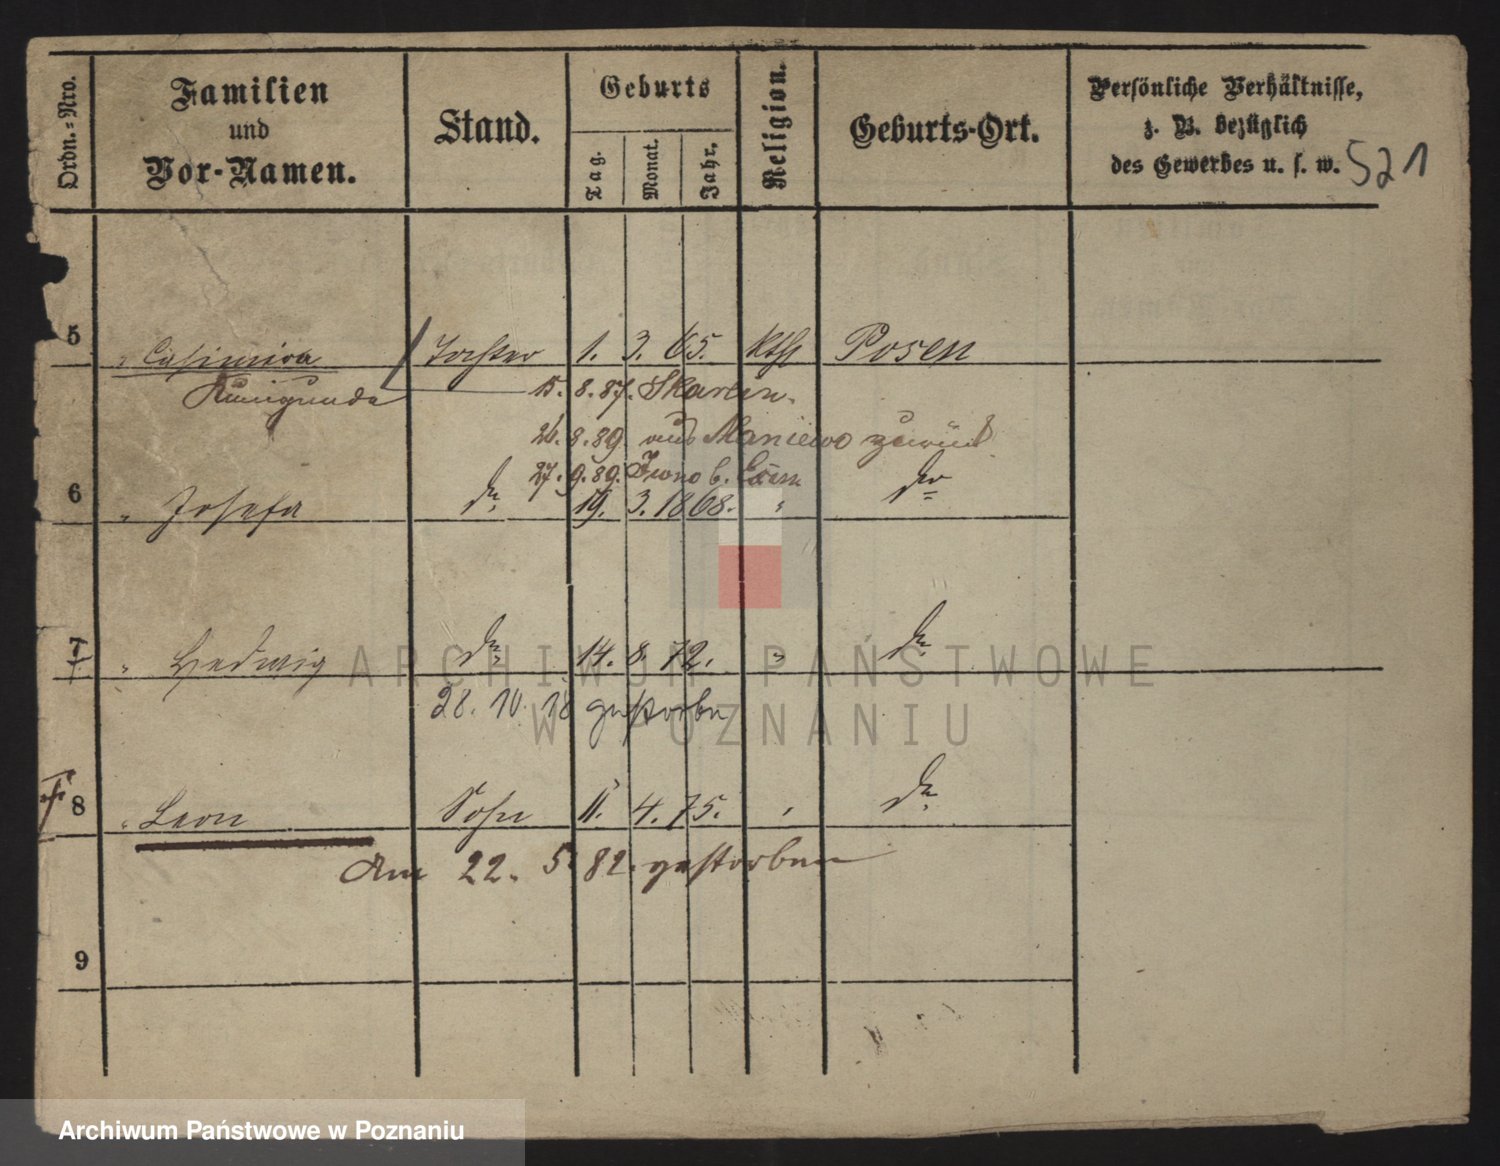 Ordn.-Nro.
Familien
und
Vor-Namen.
Stand.
Geburts
Tag.
Monat.
Jahr.
Religion.
Geburts-Ort.
Persönliche Verhältnisse,
z. B. bezüglich
des Gewerbes u. s. w.
521
5 " Casimira Tochter 1. 3. 65. kth Posen
Kunigunda 15. 8. 87.
26. 8. 89. aus Maniewo zurück
27. 9. 89. b.
6 " Josefa do. 19. 3. 1868. " do
7 " Hedwig do. 14. 8. 72. " do.
28. 10. 18 gestorben
8 " Leon Sohn 11. 4. 75. " do.
Am 22. 5. 82. gestorben
9
ARCHIWUM PAŃSTWOWE
W POZNANIU
Archiwum Państwowe w Poznaniu